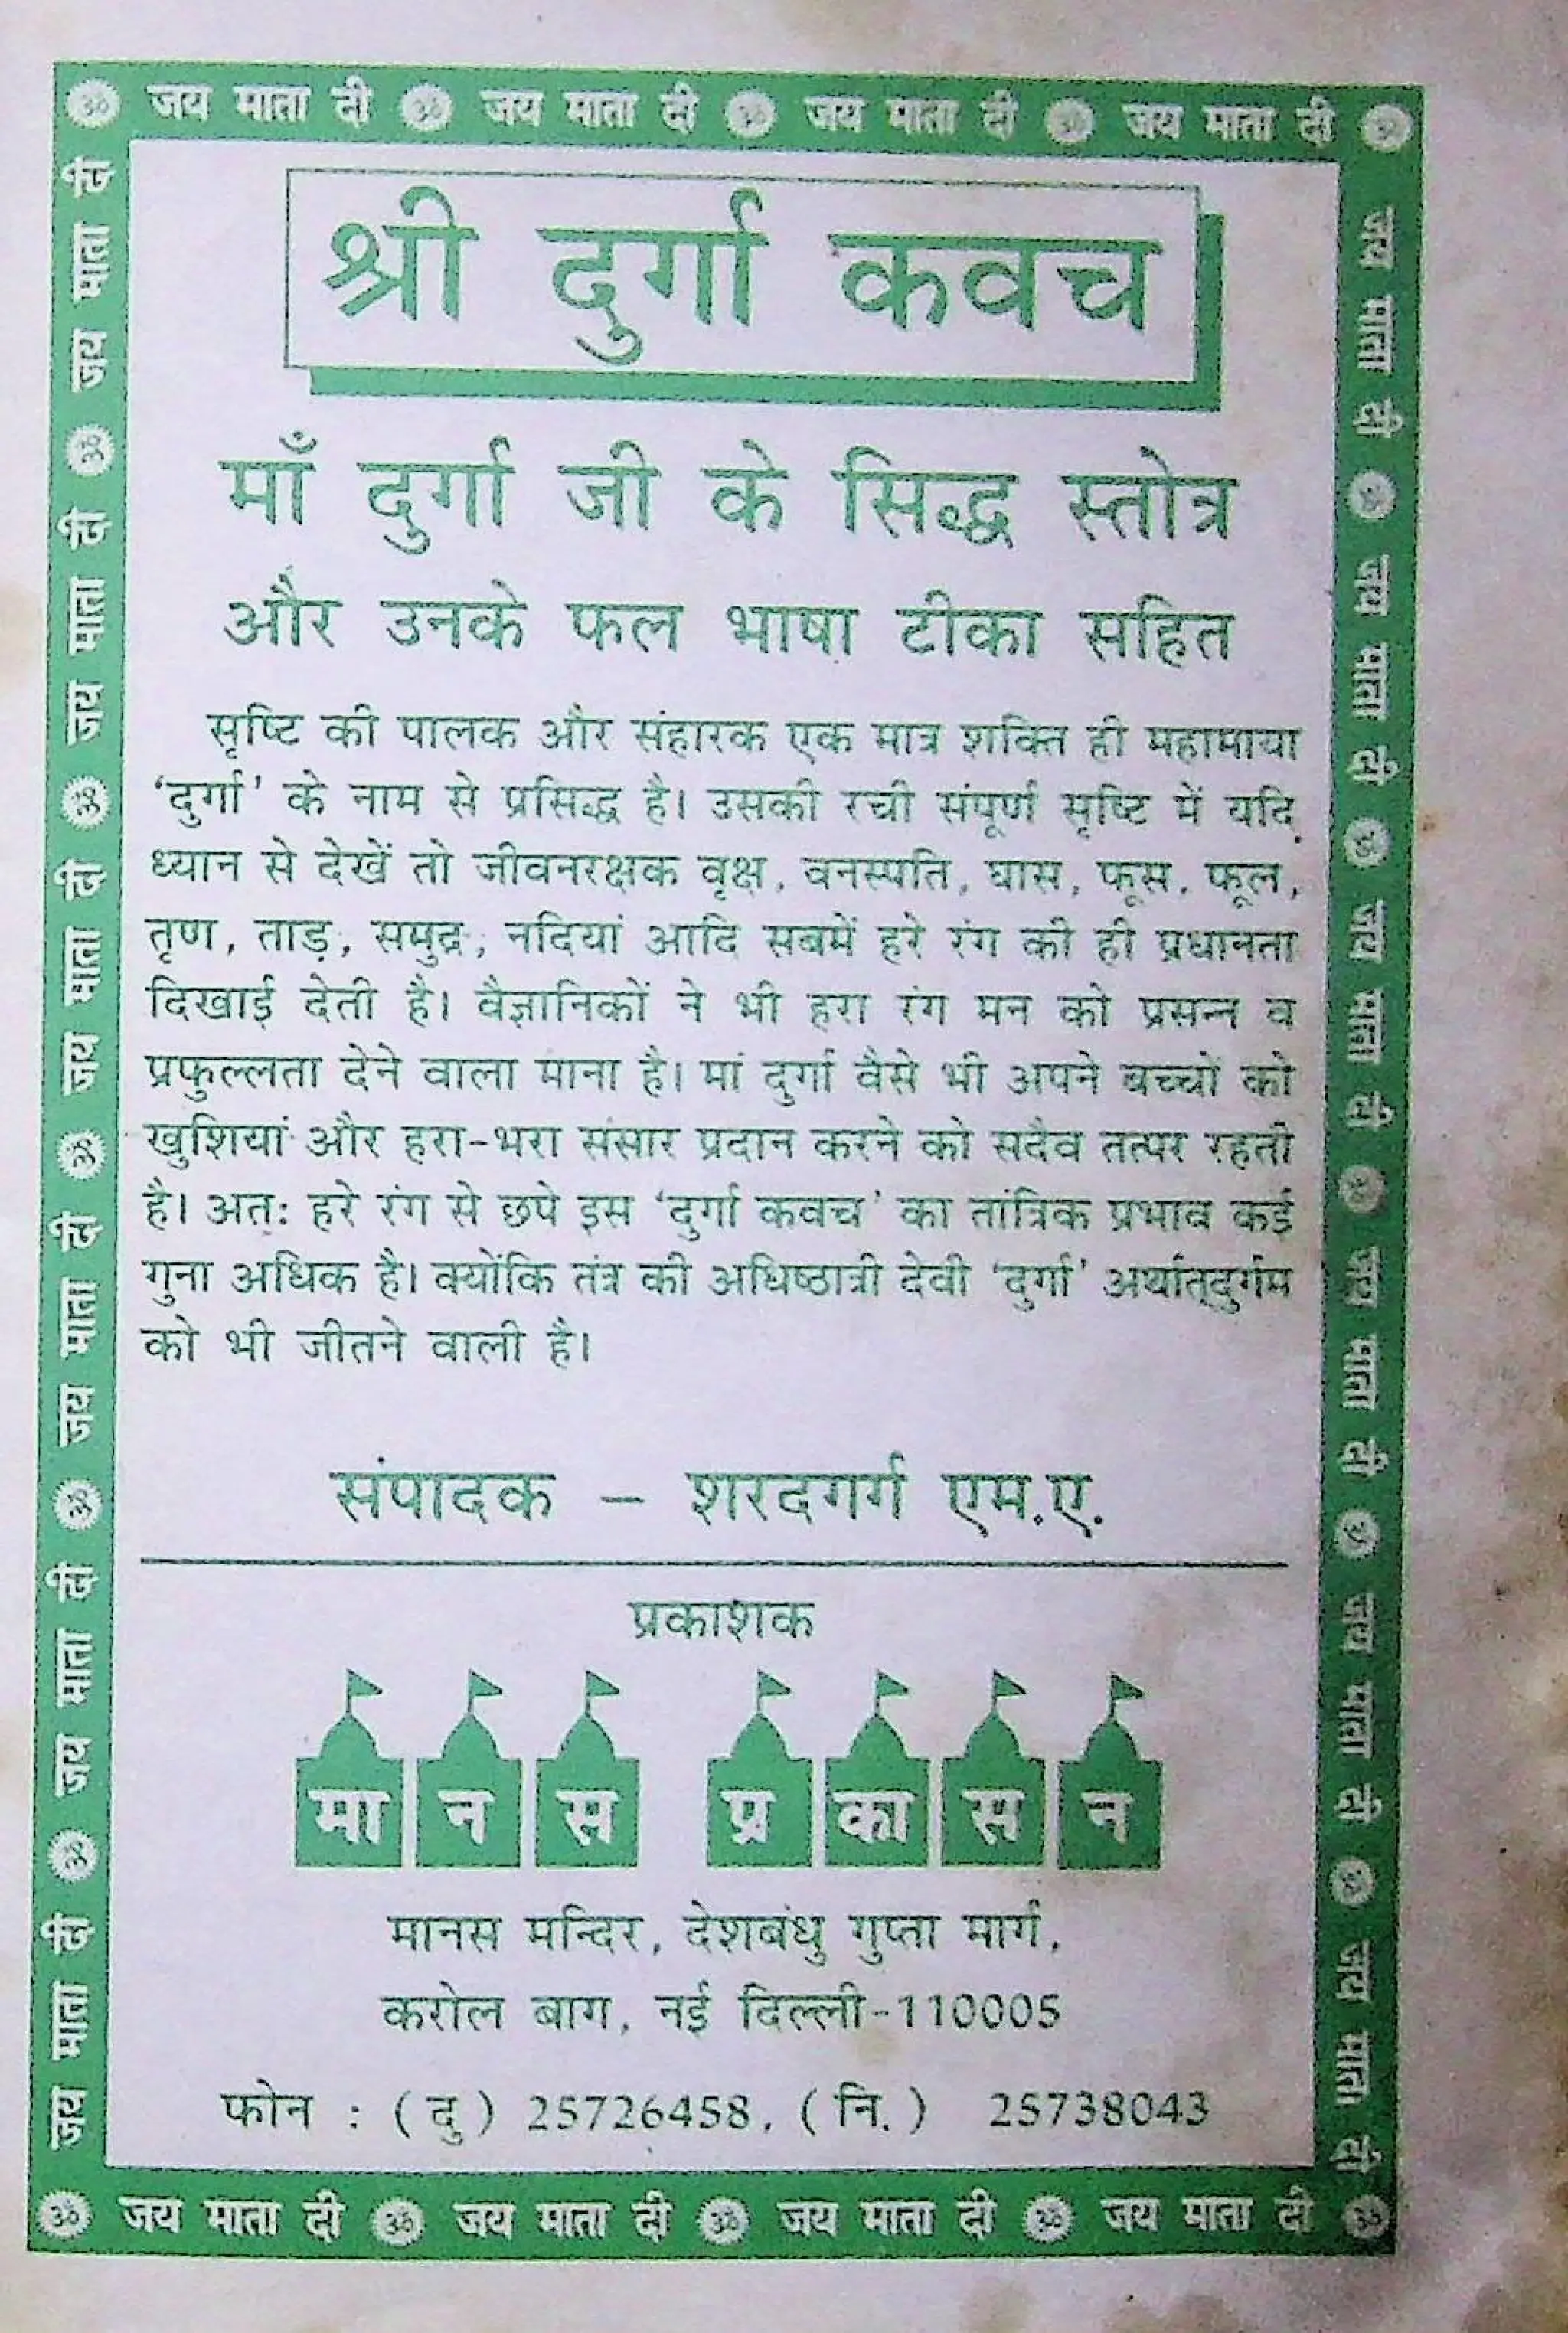 ॐ जय माता दी ॐ जय माता दी ॐ जय माता दी ॐ जय माता दी ॐ
श्री दुर्गा कवच
माँ दुर्गा जी के सिद्ध स्तोत्र
और उनके फल भाषा टीका सहित
सृष्टि की पालक और संहारक एक मात्र शक्ति ही महामाया
‘दुर्गा’ के नाम से प्रसिद्ध है। उसकी रची संपूर्ण सृष्टि में यदि
ध्यान से देखें तो जीवनरक्षक वृक्ष, वनस्पति, घास, फूस, फूल,
तृण, ताड़, समुद्र, नदियां आदि सबमें हरे रंग की ही प्रधानता
दिखाई देती है। वैज्ञानिकों ने भी हरा रंग मन को प्रसन्न व
प्रफुल्लता देने वाला माना है। मां दुर्गा वैसे भी अपने बच्चों को
खुशियां और हरा-भरा संसार प्रदान करने को सदैव तत्पर रहती
है। अतः हरे रंग से छपे इस ‘दुर्गा कवच’ का तांत्रिक प्रभाव कई
गुना अधिक है। क्योंकि तंत्र की अधिष्ठात्री देवी ‘दुर्गा’ अर्थात्दुर्गम
को भी जीतने वाली है।
संपादक – शरदगर्ग एम.ए.
प्रकाशक
मानस प्रकासन
मानस मन्दिर, देशबंधु गुप्ता मार्ग,
करोल बाग, नई दिल्ली-110005
फोन : (दु) 25726458, (नि.) 25738043
ॐ जय माता दी ॐ जय माता दी ॐ जय माता दी ॐ जय माता दी ॐ
जय माता दी ॐ जय माता दी ॐ जय माता दी ॐ जय माता दी ॐ जय माता दी ॐ जय माता दी
जय माता दी ॐ जय माता दी ॐ जय माता दी ॐ जय माता दी ॐ जय माता दी ॐ जय माता दी